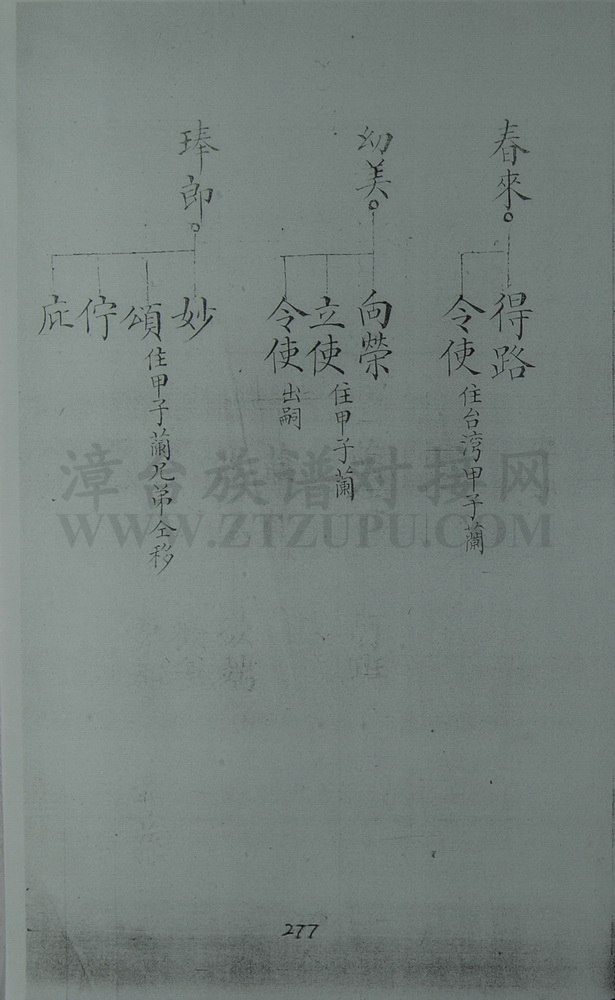 春來
得路
令使 住台湾甲子蘭
幼美
向榮
立使 住甲子蘭
令使 出嗣
琫郎
妙
頌 住甲子蘭兄弟仝移
佇
庇
漳台族谱对接网
WWW.ZTZUPU.COM
277